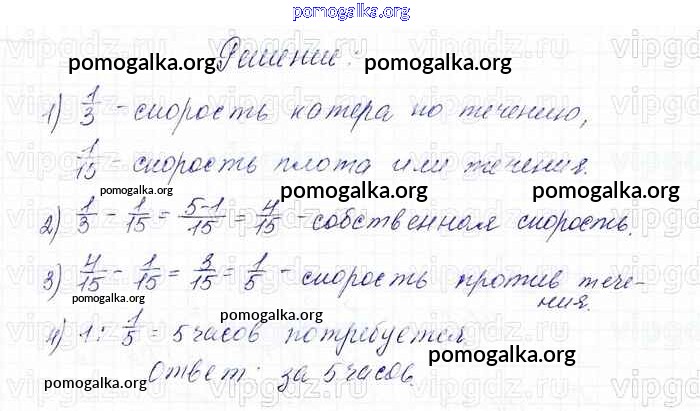 pomogalka.org
Решение:
pomogalka.org pomogalka.org
1) 1/3 - скорость катера по течению,
1/15 - скорость плота или течения.
pomogalka.org pomogalka.org pomogalka.org
2) 1/3 - 1/15 = 5-1/15 = 4/15 - собственная скорость.
3) 4/15 - 1/15 = 3/15 = 1/5 - скорость против тече-
ния.
pomogalka.org pomogalka.org pomogalka.org
4) 1 : 1/5 = 5 часов потребуется.
pomogalka.org
Ответ: за 5 часов.
pomogalka.org
vipgdz.ru